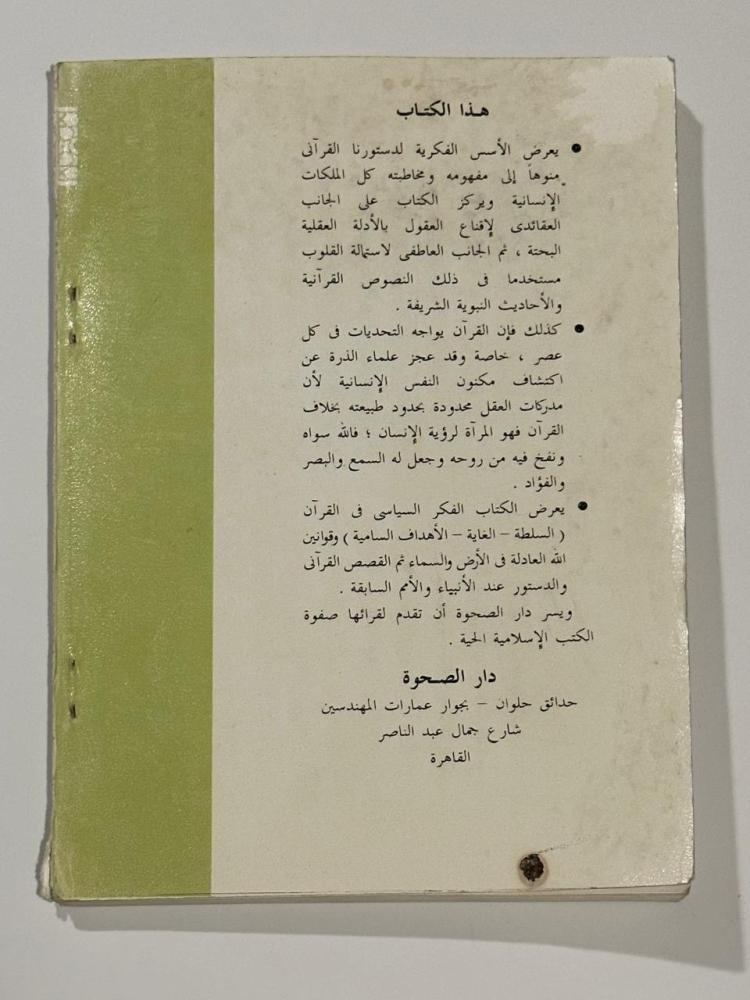 هـذا الكتـاب
● يعرض الأسس الفكرية لدستورنا القرآنى
منوهاً إلى مفهومه ومخاطبته كل الملكات
الإنسانية ويركز الكتاب على الجانب
العقائدى لإقناع العقول بالأدلة العقلية
البحتة ، ثم الجانب العاطفى لاستمالة القلوب
مستخدما فى ذلك النصوص القرآنية
والأحاديث النبوية الشريفة .
● كذلك فإن القرآن يواجه التحديات فى كل
عصر ، خاصة وقد عجز علماء الذرة عن
اكتشاف مكنون النفس الإنسانية لأن
مدركات العقل محدودة بحدود طبيعته بخلاف
القرآن فهو المرآة لرؤية الإنسان ؛ فالله سواه
ونفخ فيه من روحه وجعل له السمع والبصر
والفؤاد .
● يعرض الكتاب الفكر السياسى فى القرآن
( السلطة – الغاية – الأهداف السامية ) وقوانين
الله العادلة فى الأرض والسماء ثم القصص القرآنى
والدستور عند الأنبياء والأمم السابقة .
ويسر دار الصحوة أن تقدم لقرائها صفوة
الكتب الإسلامية الحية .
دار الصـحوة
حدائق حلوان – بجوار عمارات المهندسين
شارع جمال عبد الناصر
القاهرة